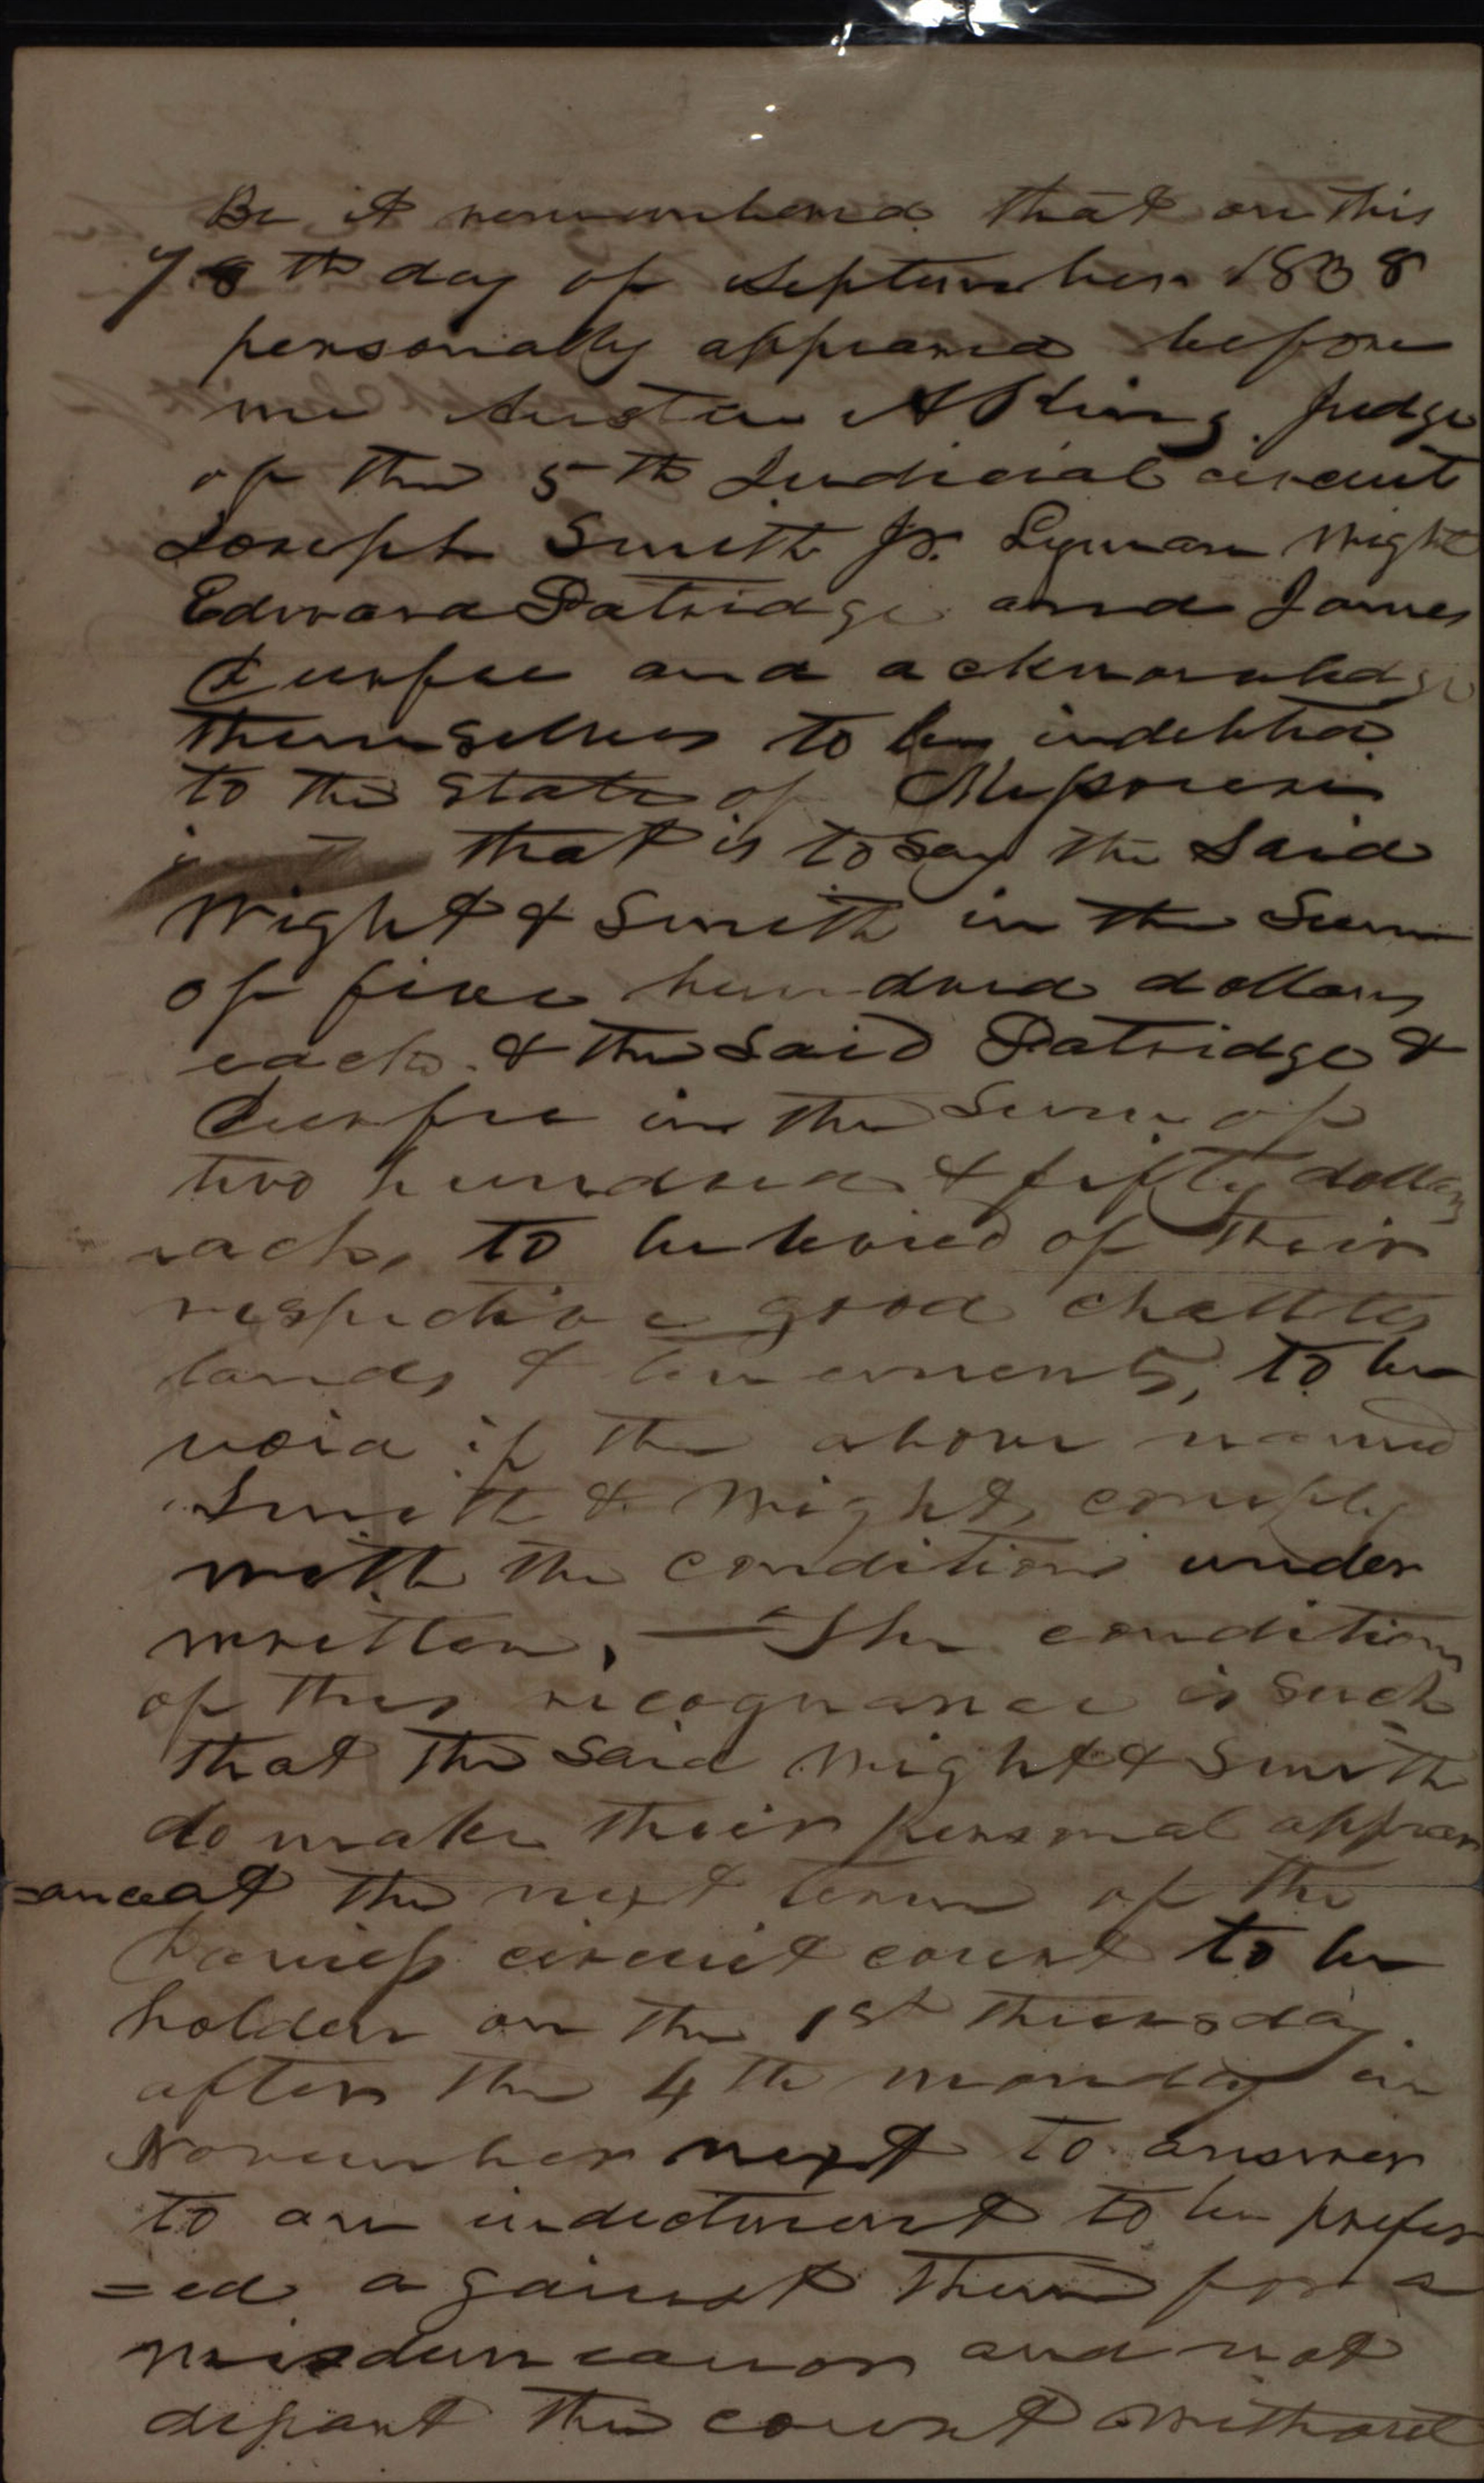 Be it remembered that on this
7 8th day of September 1838
personally appeared before
me Austin A King Judge
of the 5th Judicial circuit
Joseph Smith Jr. Lyman Wight
Edward Patridge and James
Durfee and acknowledge
themselves to be indebted
to the State of Missouri
that is to say the said
Wight & Smith in the Sum
of five hundred dollars
each & the said Patridge &
Durfee in the Sum of
two hundred & fifty dollars
each, to be levied of their
respective good chattles
lands & tenements, to be
void if the above named
Smith & Wight, comply
with the conditions under
written, — The condition
of this recognance is such
that the said Wight & Smith
do make their personal appear
=ance at the next term of the
Daviess circuit court to be
holden on the 1st thursday
after the 4th monday in
November next to answer
to an indictment to be prefer
=ed against them for a
misdemeanor and not
depart the court without